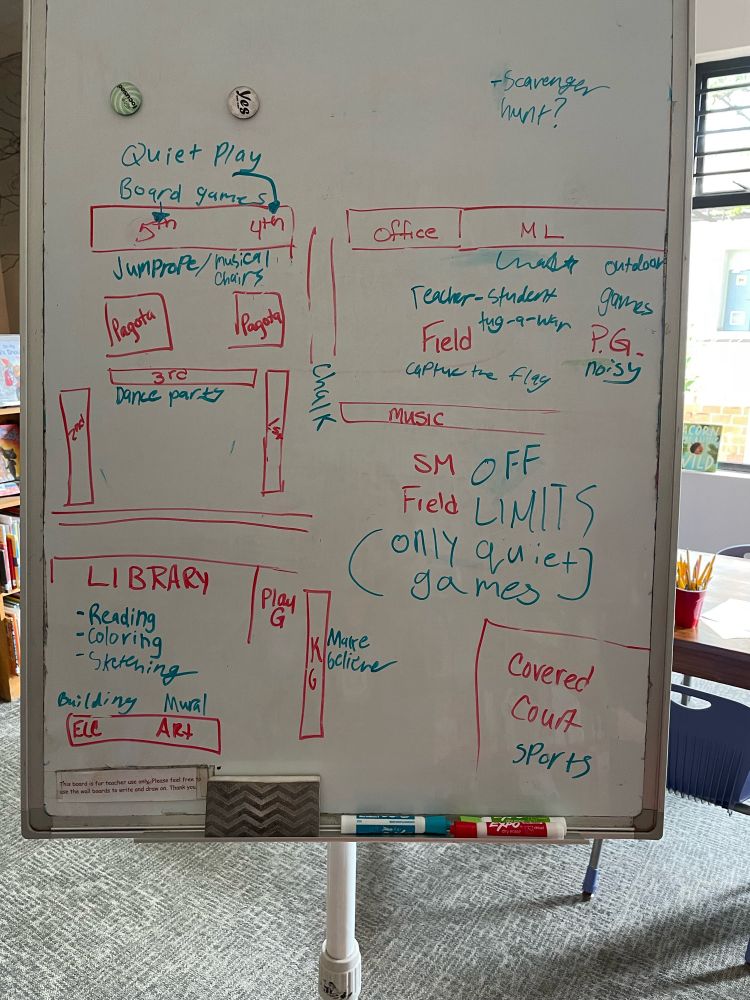 -Scavenger
hunt?
Yes
Quiet Play
Board games
5th 4th
Jumprope/musical
chairs
Pagota Pagota
3rd
Dance party
2nd
1st
Chalk
Office ML
outdoor
games
Teacher-student
tug-a-war
Field
P.G.
noisy
capture the flag
MUSIC
SM OFF
Field LIMITS
(only quiet
games)
LIBRARY
-Reading
-Coloring
-Sketching
Play
G
KG
Make
believe
Building Mural
ELC ART
Covered
Court
sports
This board is for teacher use only. Please feel free to
use the wall boards to write and draw on. Thank you
EXPO